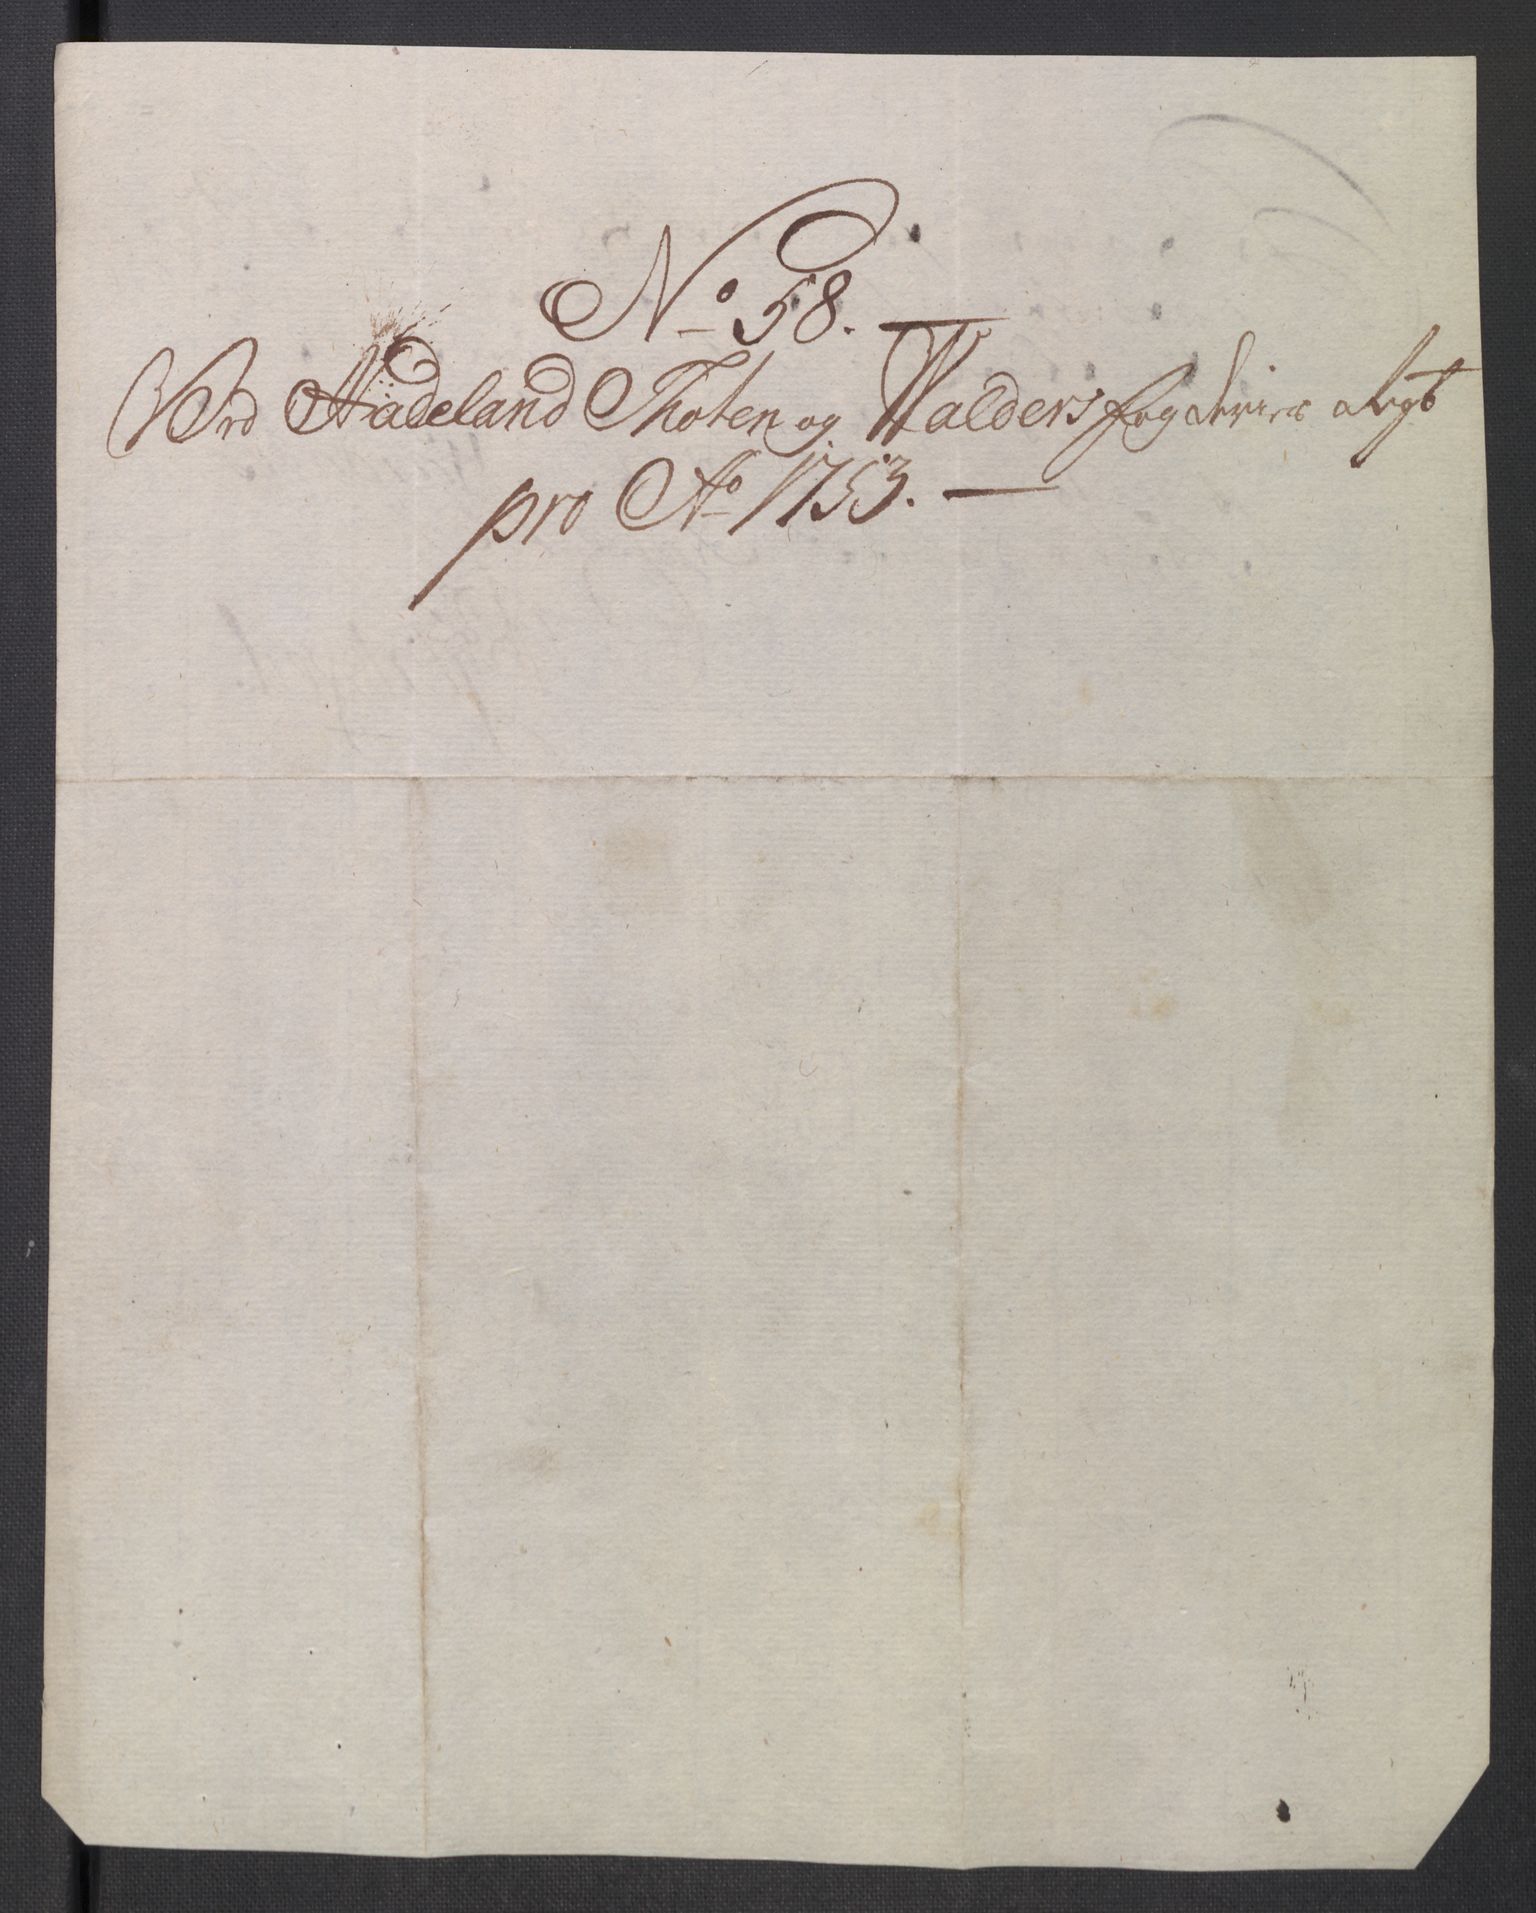 No 58.
Ved Hadeland Thoten og Walders fogderies Regb
pro Ao 1753.